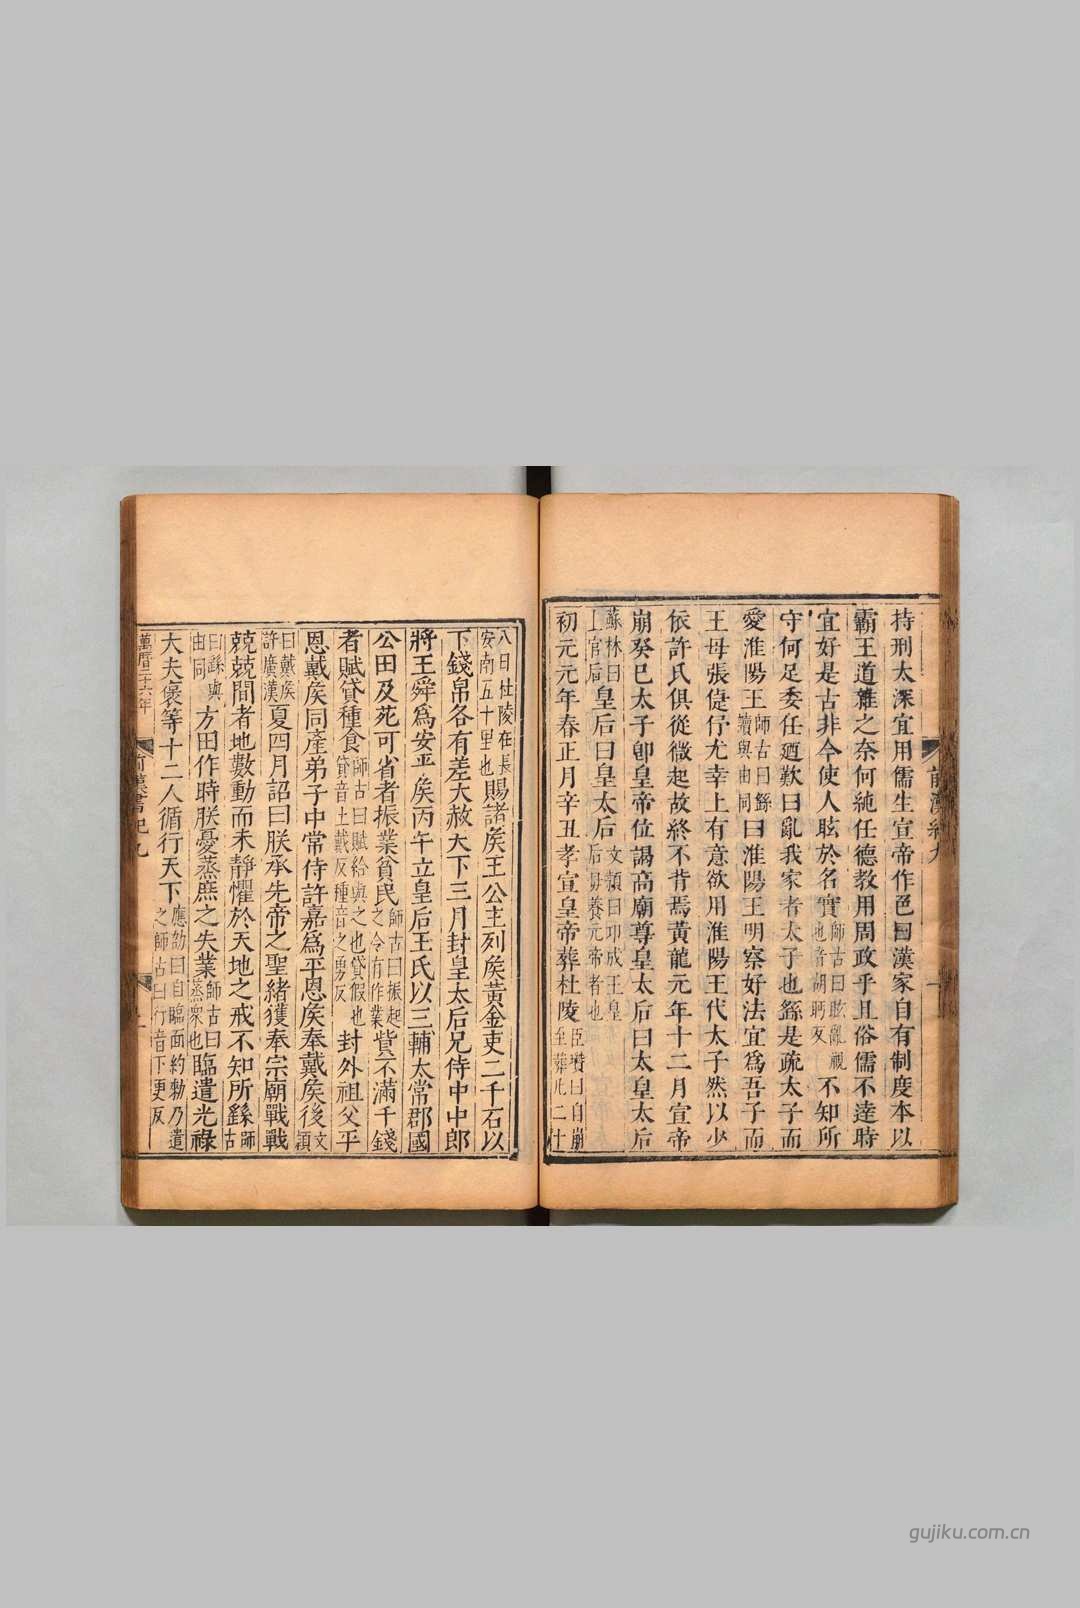 持刑太深宜用儒生宣帝作色曰漢家自有制度本以
霸王道雜之奈何純任德教用周政乎且俗儒不達時
宜好是古非今使人眩於名實師古曰眩亂視也音胡眄反不知所
守何足委任廼歎曰亂我家者太子也繇是疏太子而
愛淮陽王師古曰繇讀與由同曰淮陽王明察好法宜爲吾子而
王母張倢伃尤幸上有意欲用淮陽王代太子然以少
依許氏俱從微起故終不背焉黃龍元年十二月宣帝
崩癸巳太子卽皇帝位謁高廟尊皇太后曰太皇太后
蘇林曰上官后皇后曰皇太后文穎曰卭成王皇后母養元帝者也
初元元年春正月辛丑孝宣皇帝葬杜陵臣瓚曰自崩至葬凡二十
前漢紀九
八日杜陵在長安南五十里也賜諸矦王公主列矦黃金吏二千石以
下錢帛各有差大赦天下三月封皇太后兄侍中中郎
將王舜爲安平矦丙午立皇后王氏以三輔太常郡國
公田及苑可省者振業貧民師古曰振起之令有作業貲不滿千錢
者賦貸種食師古曰賦給與之也貸假也貸音土戴反種音之勇反封外祖父平
恩戴矦同產弟子中常侍許嘉爲平恩矦奉戴矦後文穎
曰戴矦許廣漢夏四月詔曰朕承先帝之聖緒獲奉宗廟戰戰
兢兢間者地數動而未靜懼於天地之戒不知所繇師古
曰繇與由同方田作時朕憂蒸庶之失業師古曰蒸衆也臨遣光祿
大夫褒等十二人循行天下應劭曰自臨面約勑乃遣之師古曰行音下更反
萬曆二十六年
前漢書紀九
gujiku.com.cn